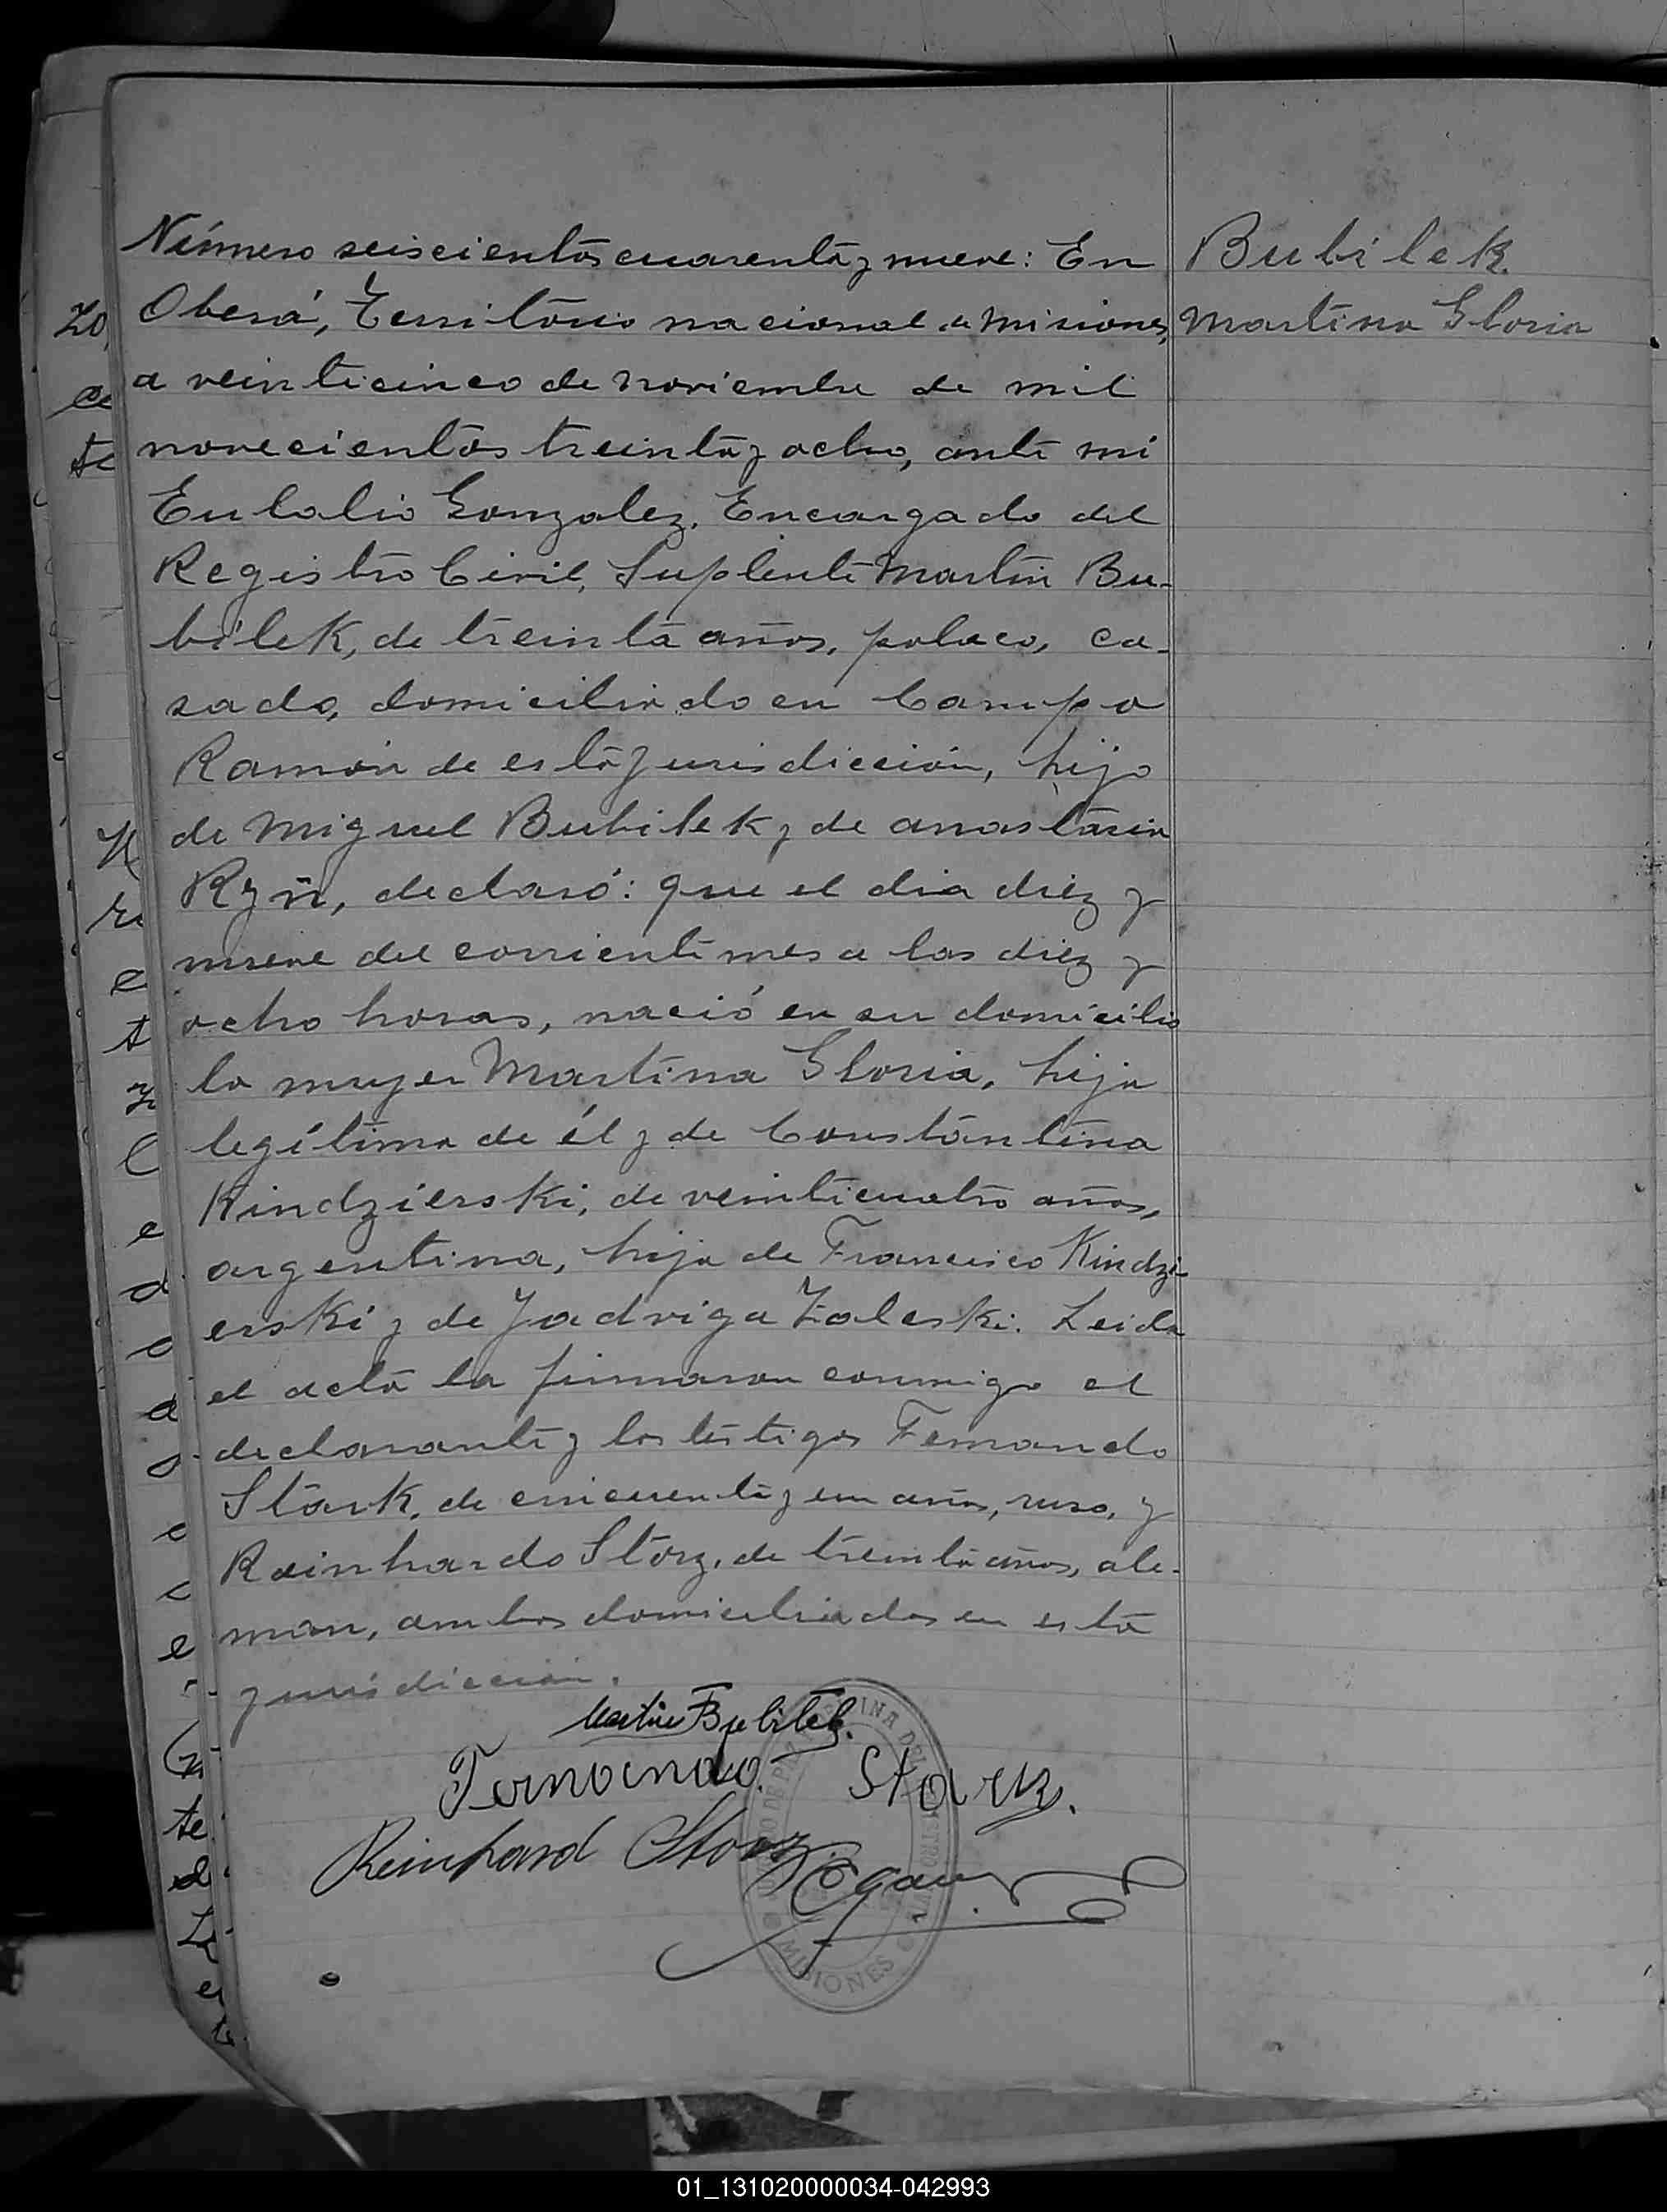 Bubilek.
Martina Gloria
Número seiscientos cuarenta y nueve: En
Oberá, Territorio nacional de Misiones,
a veinticinco de noviembre de mil
novecientos treinta y ocho, ante mi
Eulalio Gonzalez, Encargado del
Registro Civil, Suplente Martin Bu-
bilek, de treinta años, polaco, ca-
sado, domiciliado en Campo
Ramón de esta jurisdicción, hijo
de Miguel Bubilek y de Anastasia
Ryñ, declaró: que el dia diez y
nueve del corriente mes a las diez y
ocho horas, nació en su domicilio
la mujer Martina Gloria, hija
legítima de él y de Constantina
Kindzierski, de veinticuatro años,
argentina, hija de Francisco Kindzi-
erski y de Jadviga Zaleski. Leida
el acta la firmaron conmigo el
declarante y los testigos Fernando
Stark, de cincuenta y un años, ruso, y
Reinhardo Storz, de treinta años, ale-
mán, ambos domiciliados en esta
jurisdicción.
Martin Bubilek.
Fernando. Stark.
Reinhard Storz
MISIONES
01_131020000034-042993